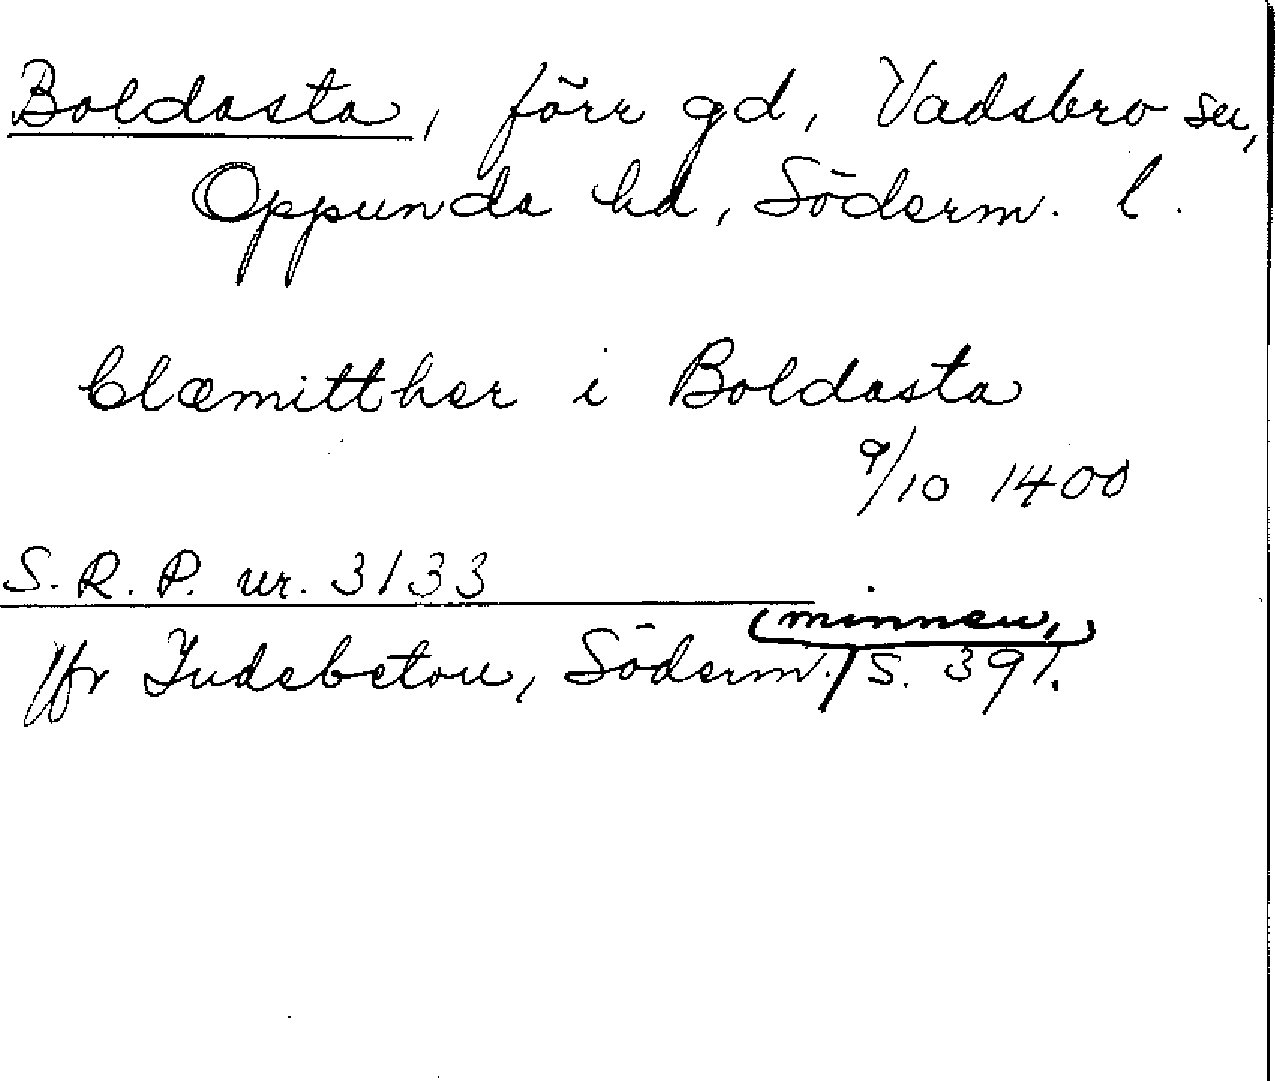 Boldasta, förr gd, Vadsbro sn,
Oppunda hd, Söderm. l.
Clæmitther i Boldasta
9/10 1400
S.R.P. nr. 3133
minnen,
Jfr Indebetou, Söderm. s. 391.